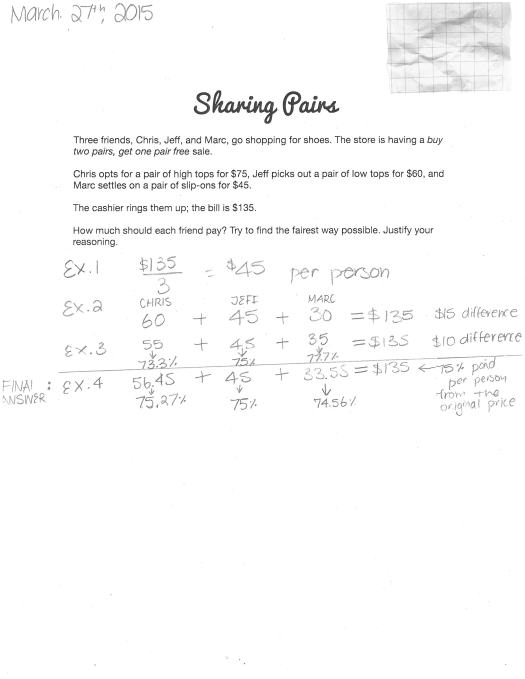 March. 27th, 2015
Sharing Pairs
Three friends, Chris, Jeff, and Marc, go shopping for shoes. The store is having a buy
two pairs, get one pair free sale.
Chris opts for a pair of high tops for $75, Jeff picks out a pair of low tops for $60, and
Marc settles on a pair of slip-ons for $45.
The cashier rings them up; the bill is $135.
How much should each friend pay? Try to find the fairest way possible. Justify your
reasoning.
Ex.1 $135 / 3 = $45 per person
CHRIS JEFF MARC
Ex.2 60 + 45 + 30 = $135 $15 difference
Ex.3 55 + 45 + 35 = $135 $10 difference
73.3% 75% 77.7%
FINAL ANSWER : Ex.4 56.45 + 45 + 33.55 = $135 ← 75% paid
per person
from the
original price
75.27% 75% 74.56%